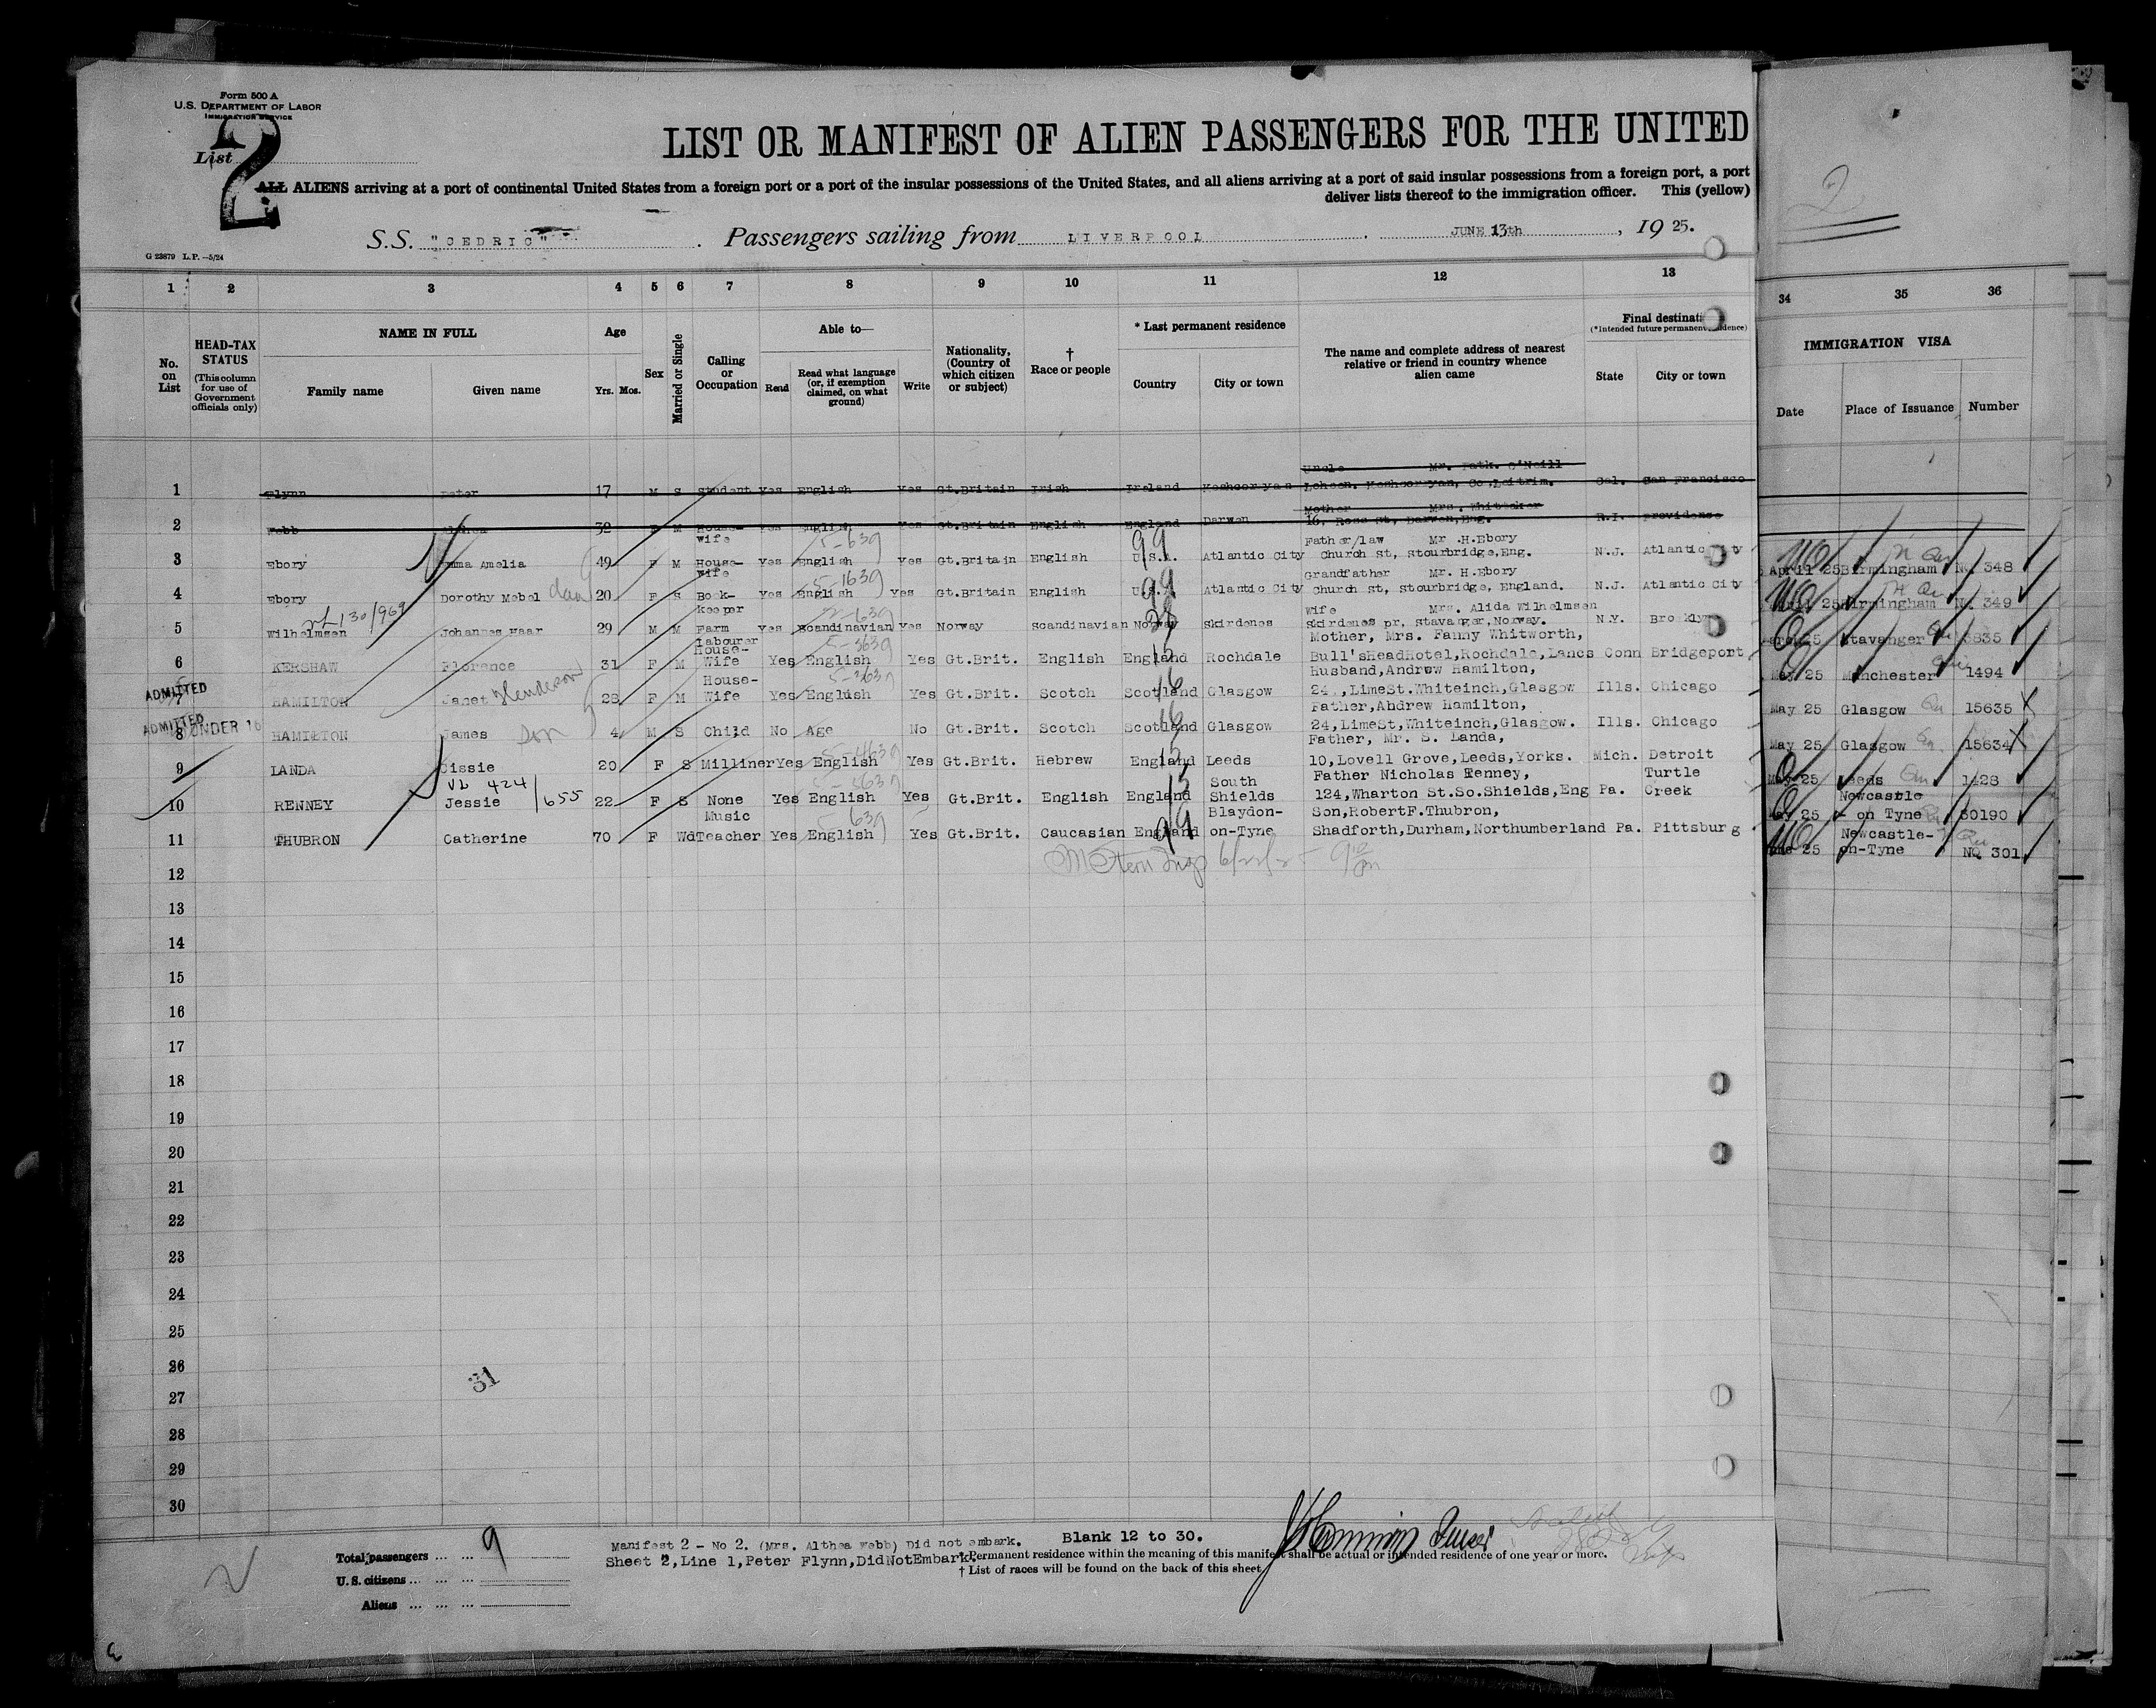 Form 500 A
U.S. DEPARTMENT OF LABOR
IMMIGRATION SERVICE
List 2
LIST OR MANIFEST OF ALIEN PASSENGERS FOR THE UNITED
ALL ALIENS arriving at a port of continental United States from a foreign port or a port of the insular possessions of the United States, and all aliens arriving at a port of said insular possessions from a foreign port, a port
deliver lists thereof to the immigration officer. This (yellow)
S.S. "CEDRIC" . Passengers sailing from LIVERPOOL . JUNE 13th , 1925.
G 23879 L.P.—5/24
2
1 2 3 4 5 6 7 8 9 10 11 12 13 34 35 36
No. on List
HEAD-TAX STATUS
(This column for use of Government officials only)
NAME IN FULL
Family name Given name
Age
Yrs. Mos.
Sex
Married or Single
Calling or Occupation
Able to—
Read
Read what language (or, if exemption claimed, on what ground)
Write
Nationality, (Country of which citizen or subject)
† Race or people
* Last permanent residence
Country City or town
The name and complete address of nearest relative or friend in country whence alien came
Final destination
State City or town
IMMIGRATION VISA
Date Place of Issuance Number
Uncle Mr. Patk. O'Neill
1 Flynn Peter 17 M S Student Yes English Yes Gt.Britain Irish Ireland Keshcorryan Loheen. Keshcorryan, Co.Leitrim. Cal. San Francisco
Mother Mrs. Whittaker
2 Webb Althea 32 F M House-wife Yes English Yes Gt.Britain English England Darwen 16, Ross St, Darwen,Eng. R.I. providence
Father/law Mr .H.Ebory
3 Ebory Emma Amelia 49 F M House-wife Yes English 5-639 Yes Gt.Britain English U.S.A. 99 Atlantic City Church st, stourbridge,Eng. N.J. Atlantic City April 25 Birmingham No. 348
Grandfather Mr. H.Ebory
4 Ebory Dorothy Mabel dau 20 F S Book-keeper Yes English 5-1639 Yes Gt.Britain English U.S.A. 99 Atlantic City Church st, stourbridge, England. N.J. Atlantic City April 25 Birmingham No. 349
Wife Mrs. Alida Wilhelmsen
5 Wilhelmsen Johannes Haar 29 M M Farm Labourer Yes Scandinavian Yes Norway Scandinavian Norway Skirdenes Skirdenes pr. stavanger,Norway. N.Y. Brooklyn Stavanger
Mother, Mrs. Fanny Whitworth,
6 KERSHAW Florence 31 F M House-Wife Yes English 5-3639 Yes Gt.Brit. English England Rochdale Bull'sHeadHotel,Rochdale,Lancs Conn Bridgeport May 25 Manchester 1494
Husband,Andrew Hamilton,
ADMITTED
7 HAMILTON Janet Henderson 28 F M House-Wife Yes English Yes Gt.Brit. Scotch Scotland 16 Glasgow 24,,LimeSt.Whiteinch,Glasgow Ills. Chicago May 25 Glasgow 15635
Father,Abdrew Hamilton,
ADMITTED UNDER 16
8 HAMILTON James Son 4 M S Child No Age No Gt.Brit. Scotch Scotland 16 Glasgow 24,LimeSt,Whiteinch,Glasgow. Ills. Chicago May 25 Glasgow 15634
Father, Mr. S. Landa,
9 LANDA Cissie 20 F S Milliner Yes English Yes Gt.Brit. Hebrew England 15 Leeds 10,Lovell Grove,Leeds,Yorks. Mich. Detroit May 25 Leeds 1428
Father Nicholas Renney,
10 RENNEY Jessie 22 F S None Yes English Yes Gt.Brit. English England 15 South Shields 124,Wharton St.So.Shields,Eng Pa. Turtle Creek May 25 Newcastle - on Tyne 50190
Son,RobertF.Thubron,
11 THUBRON Catherine 70 F Wd Music Teacher Yes English 639 Yes Gt.Brit. Caucasian England 99 Blaydon-on-Tyne Shadforth,Durham,Northumberland Pa. Pittsburg 25 Newcastle-on-Tyne NO 301
12
13
14
15
16
17
18
19
20
21
22
23
24
25
26
27
28
29
30
31
Total passengers 9
U.S. citizens
Aliens
Manifest 2 - No 2. (Mrs. Althea Webb) Did not embark.
Sheet 2,Line 1,Peter Flynn,DidNotEmbark.
Blank 12 to 30.
* Permanent residence within the meaning of this manifest shall be actual or intended residence of one year or more.
† List of races will be found on the back of this sheet.